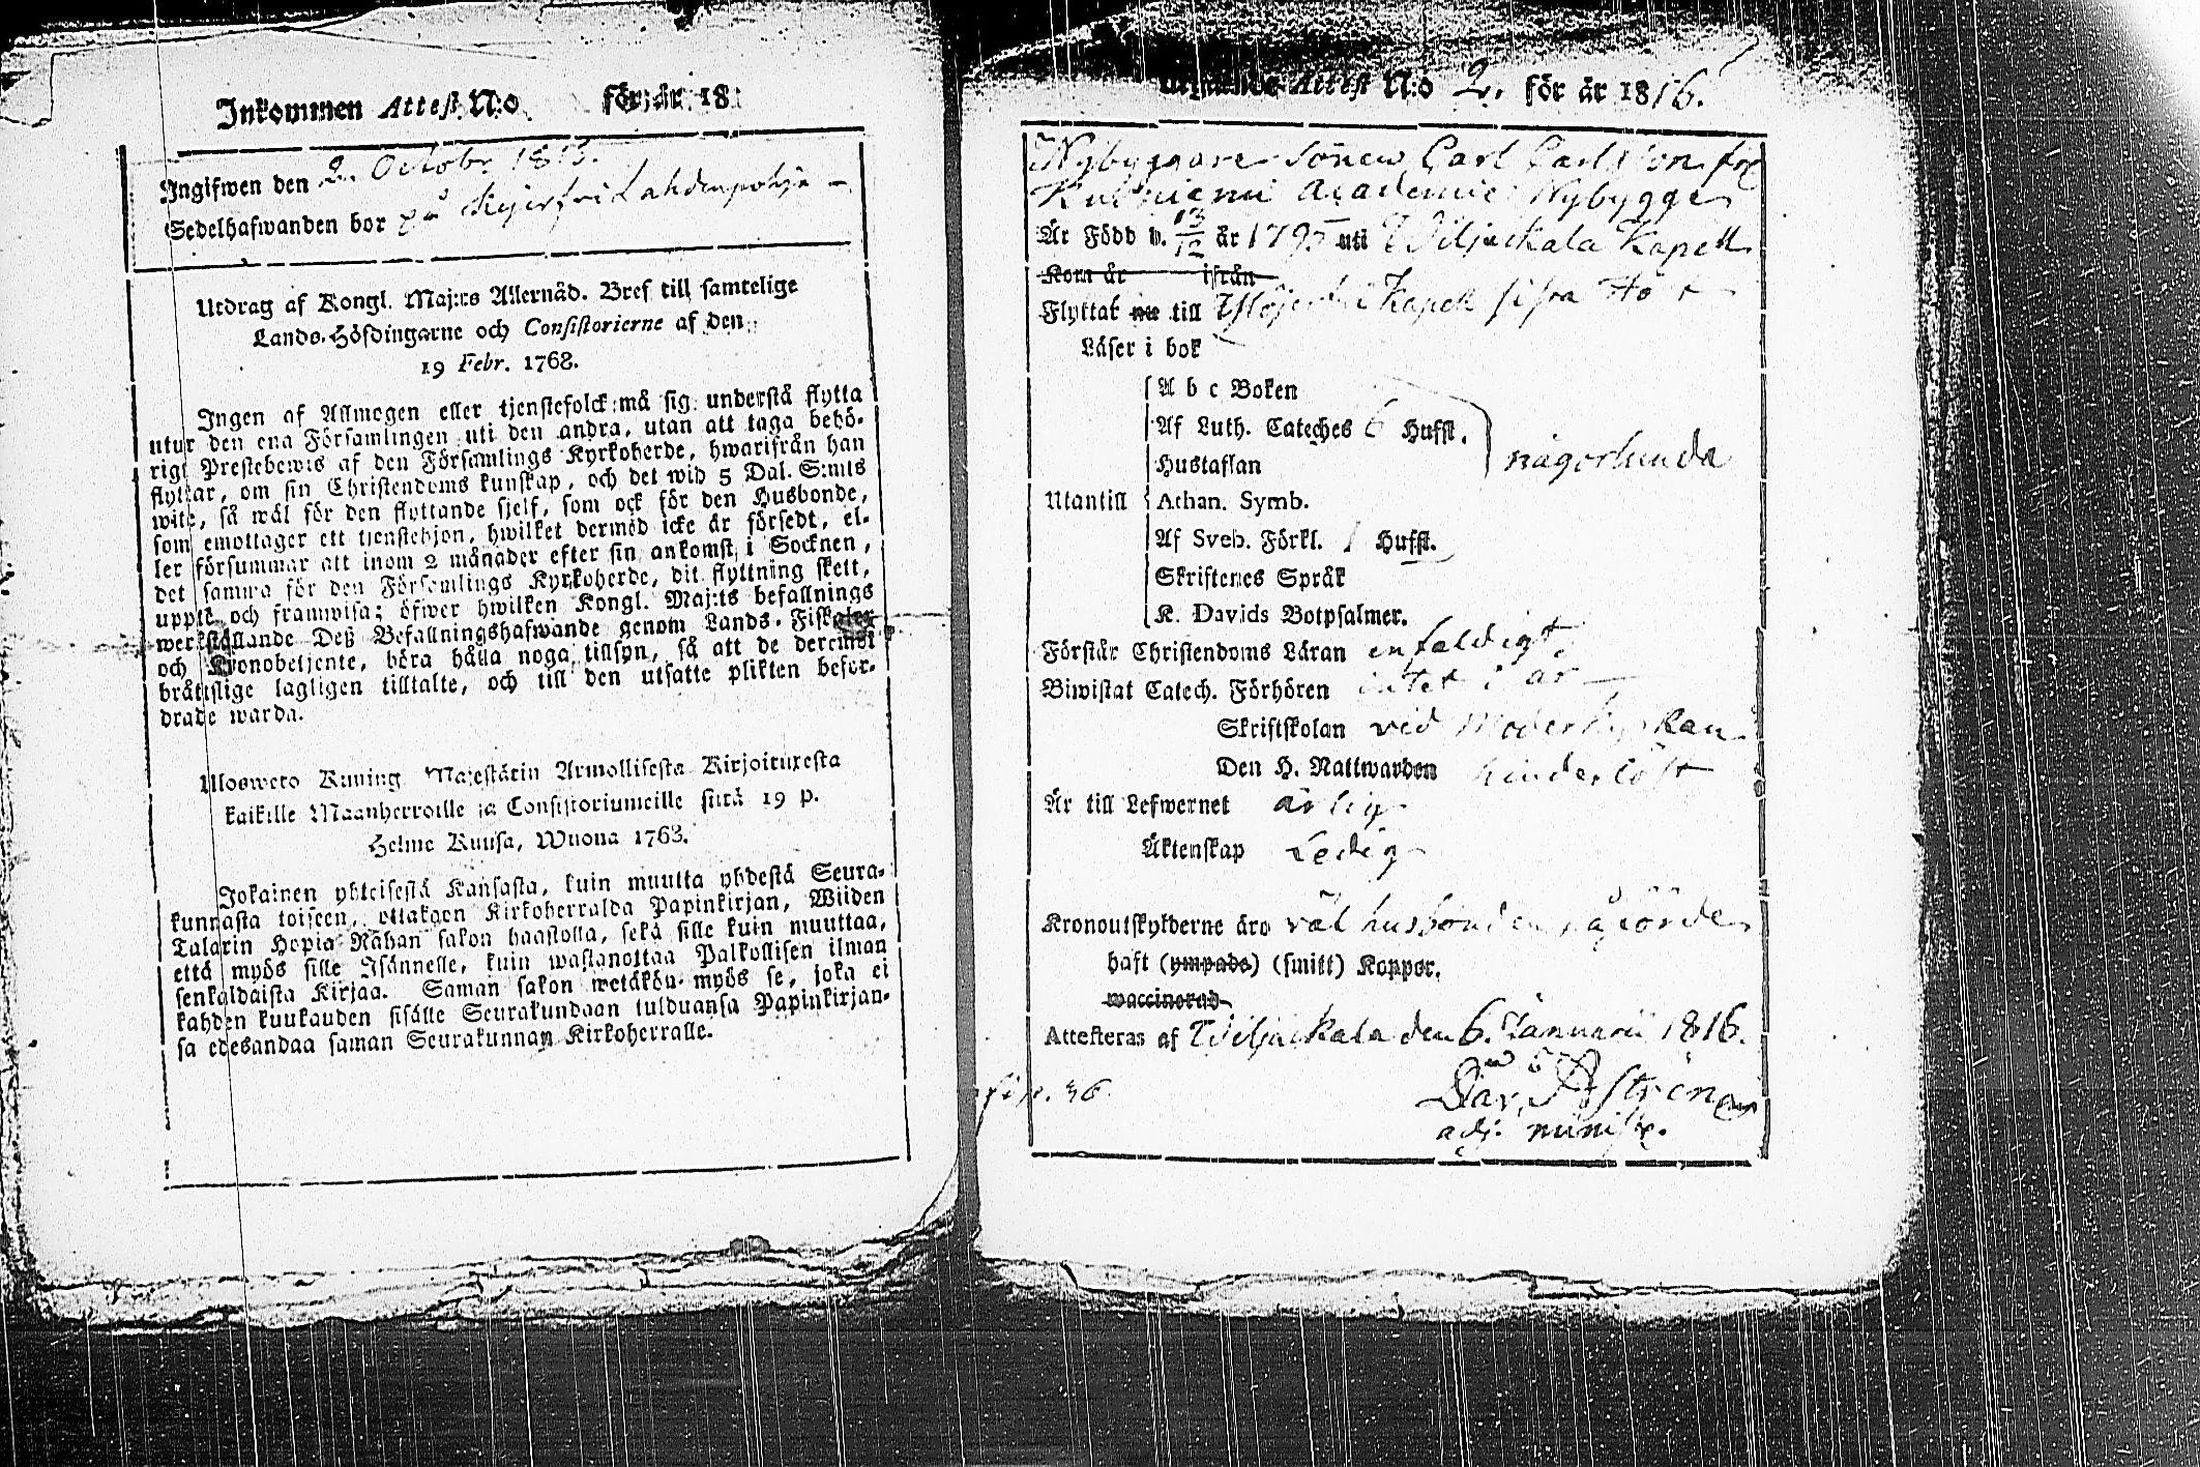 Inkommen Attest N:o för år 18
Ingifwen den 2. Octobr. 181
Sedelhafwanden bor på Lahdenpohja –
Utdrag af Kongl. Maj:ts Allernåd. Bref till samtelige
Lands-Höfdingarne och Consistorierne af den
19 Febr. 1768.
Ingen af Allmogen eller tjenstefolck må sig understå flytta
utur den ena Församlingen uti den andra, utan att taga behö-
rigt Prestebewis af den Församlings Kyrkoherde, hwarifrån han
flyttar, om sin Christendoms kunskap, och det wid 5 Dal. S:mts
wite, så wäl för den flyttande sjelf, som ock för den Husbonde,
som emottager ett tjenstehjon, hwilket dermed icke är försedt, el-
ler försummar att inom 2 månader efter sin ankomst i Socknen,
det samma för den Församlings Kyrkoherde, dit flyttning skett,
uppte och framwisa; öfwer hwilken Kongl. Maj:ts befallnings
werkställande Deß Befallningshafwande genom Lands-Fiskaler
och Kronobetjente, böra hålla noga tillsyn, så att de deremot
bråttslige lagligen tilltalte, och till den utsatte plikten befor-
drade warda.
Ulosweto Kuning. Majestätin Armollisesta Kirjoituxesta
kaikille Maanherroille ja Consistoriumeille siitä 19 p.
Helme Kuusa, Wuona 1768.
Jokainen yhteisestä Kansasta, kuin muutta yhdestä Seura-
kunnasta toiseen, ottakaan Kirkoherralda Papinkirjan, Wiiden
Talarin Hopia Rahan sakon haastolla, sekä sille kuin muuttaa,
että myös sille Isännelle, kuin wastanottaa Palkollisen ilman
senkaldaista Kirjaa. Saman sakon wetäkön myös se, joka ei
kahden kuukauden sisälle Seurakundaan tulduansa Papinkirjan-
sa edesandaa saman Seurakunnan Kirkoherralle.
Attest N:o 2. för år 1816.
Nybyggare Sonen Carl Carlsson frn
Academie Nybygge
Är Född d. 13/12 år 1795 uti Wiljackala Kapell
Kom år ifrån
Flyttat nu till Kapell sista Höst
Läser i bok
A b c Boken
Af Luth. Cateches 6 Hufst.
Hustaflan
någorlunda
Utantill Athan. Symb.
Af Sveb. Förkl. 1 Hufst.
Skriftenes Språk
K. Davids Botpsalmer.
Förstår Christendoms Läran enfaldigt
Biwistat Catech. Förhören intet i år
Skriftskolan vid Moderkyrkan
Den H. Nattwarden hinderlöst
Är till Lefwernet ärlig
Äktenskap Ledig
Kronoutskylderne äro väl husbonden
haft (ympade) (smitt) Koppor.
waccinerad
Attesteras af Wiljackala den 6. Januarii 1816.
Dav. Aström
adj. minist.